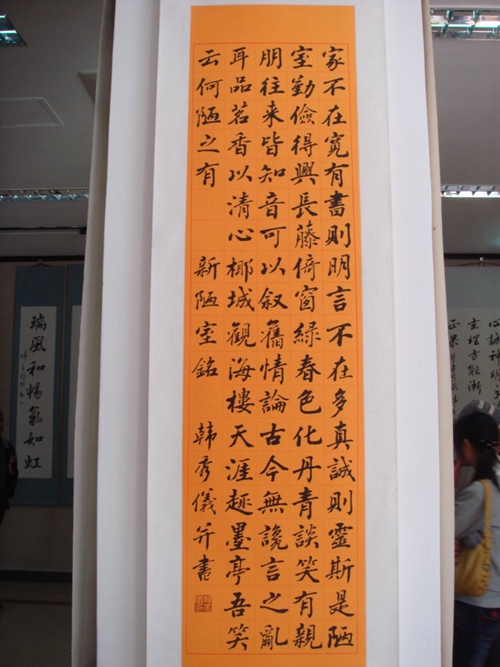 家不在寬有書則明言不在多真誠則靈斯是陋
室勤儉得興長藤倚窗綠春色化丹青談笑有親
朋往来皆知音可以叙舊情論古今無讒言之亂
耳品茗香以清心椰城觀海樓天涯趣墨亭吾笑
云何陋之有 新陋室銘 韩秀儀并書
瑞風和暢氣如虹
心誠神明
玄理方能漸
正果